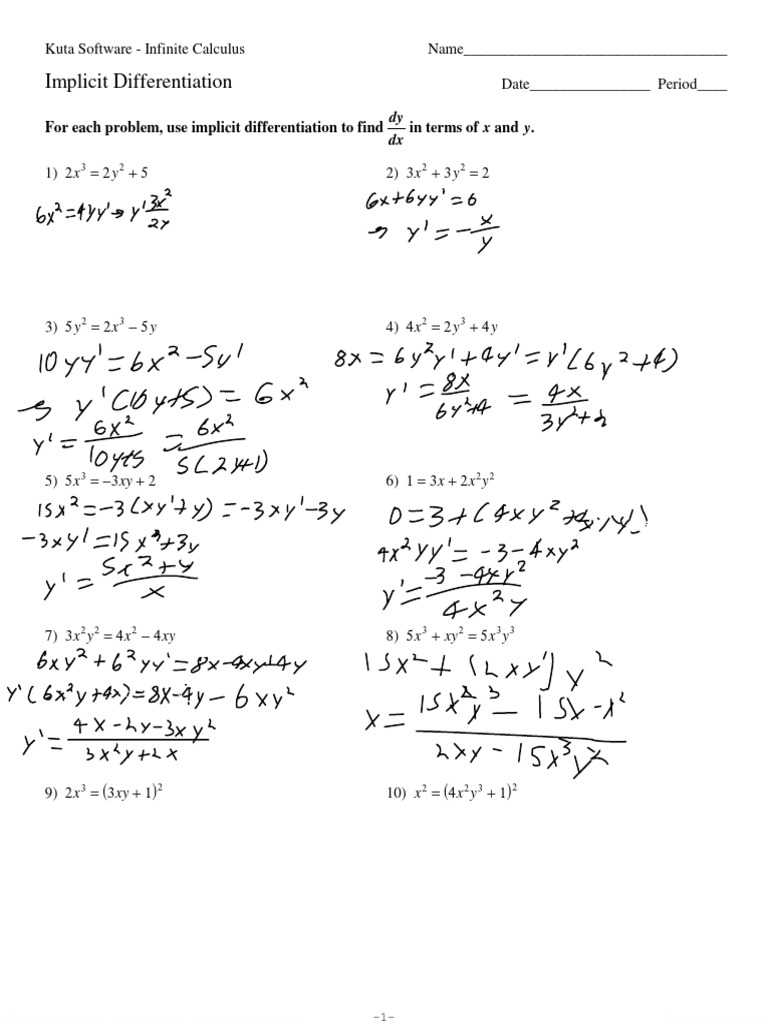 Kuta Software - Infinite Calculus
Name___________________________________
Implicit Differentiation
Date________________ Period____
For each problem, use implicit differentiation to find dy/dx in terms of x and y.
1) 2x³ = 2y² + 5
6x² = 4yy' → y' 3x²/2y
2) 3x² + 3y² = 2
6x + 6yy' = 6
→ y' = -x/y
3) 5y² = 2x³ − 5y
10yy' = 6x² − 5y'
→ y'(10y+5) = 6x²
y' = 6x²/10y+5 = 6x²/5(2y+1)
4) 4x² = 2y³ + 4y
8x = 6y²y' + 4y' = y'(6y²+4)
y' = 8x/6y²+4 = 4x/3y²+2
5) 5x³ = −3xy + 2
15x² = −3(xy'+y) = −3xy'−3y
−3xy' = 15x²+3y
y' = 5x²+y/x
6) 1 = 3x + 2x²y²
0 = 3 + (4xy²
4x²yy' = −3−4xy²
y' = −3−4xy²/4x²y
7) 3x²y² = 4x² − 4xy
6xy² + 6²yy' = 8x−4xy+4y
y'(6x²y+4x) = 8x−4y−6xy²
y' = 4x−2y−3xy²/3x²y+2x
8) 5x³ + xy² = 5x³y³
15x² + (2xy')y²
x = 15x²y³ − 15x−x²/2xy−15x³y²
9) 2x³ = (3xy + 1)²
10) x² = (4x²y³ + 1)²
-1-